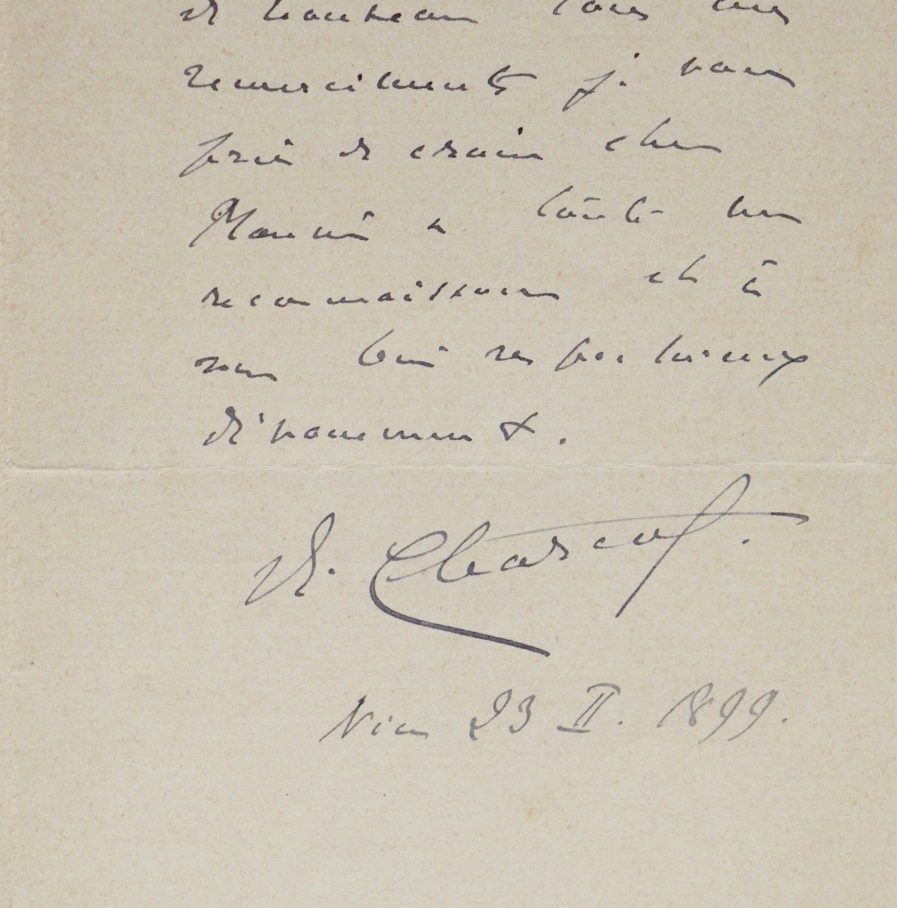 de nouveau tous mes
remerciments je vous
prie de croire cher
Monsieur à toute ma
reconnaissance et à
mon bien respectueux
dévouement.
Charcot.
Nice 23 II. 1899.